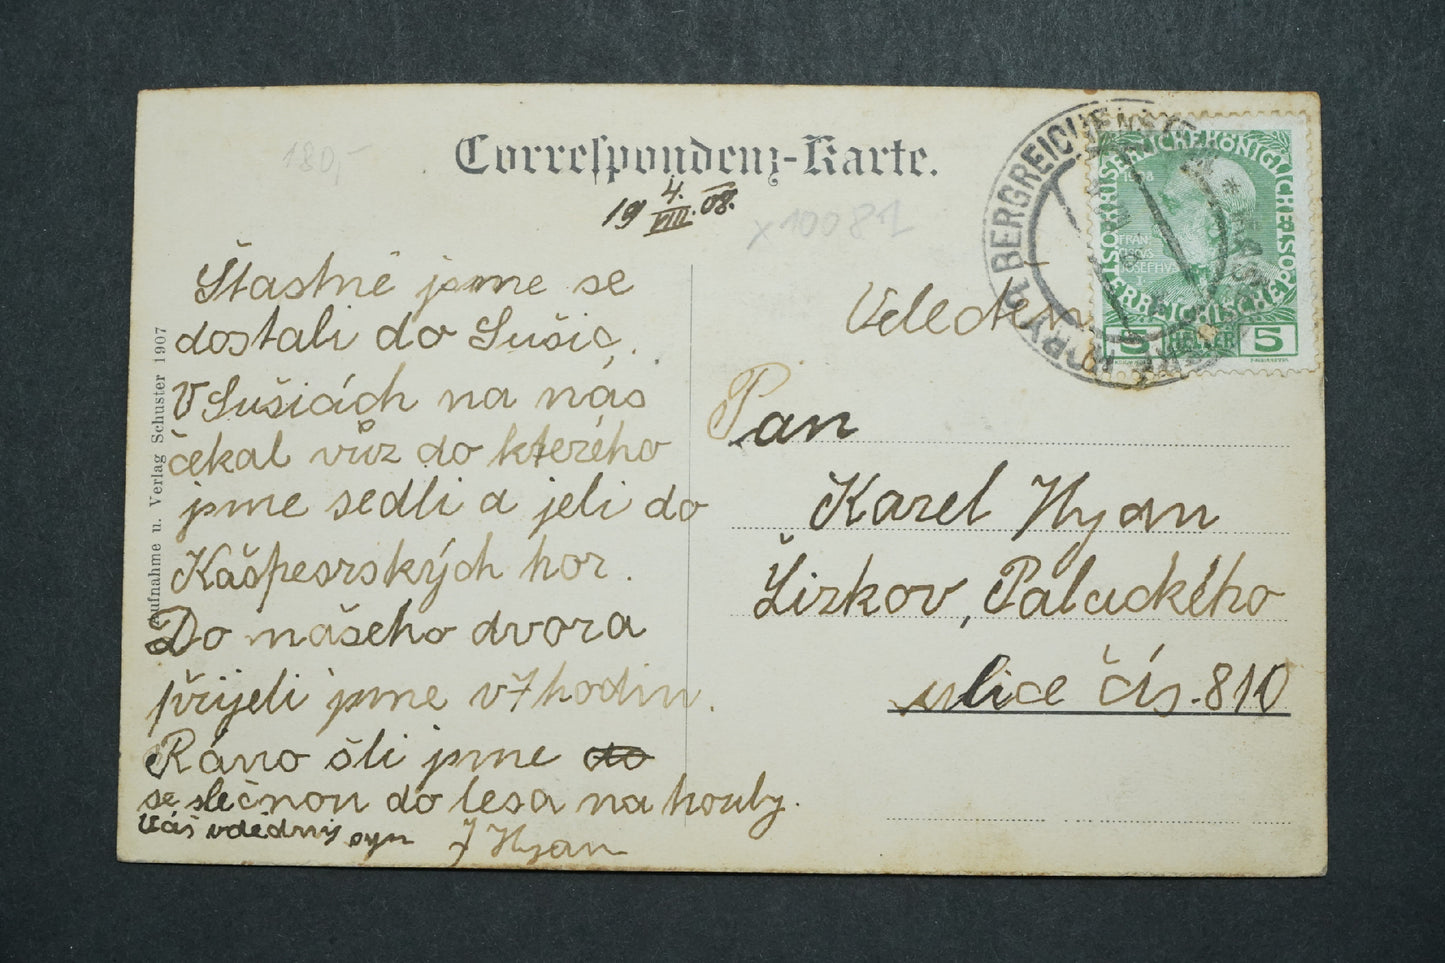 180,-
Correspondenz-Karte.
19 4./VIII. 08.
x10081
Štastně jsme se
dostali do Sušic.
V Sušicích na nás
čekal vůz do kterého
jsme sedli a jeli do
Kašperských hor.
Do našeho dvora
přijeli jsme v 7 hodin.
Ráno šli jsme do
se slečnou do lesa na houby.
Váš vděčný syn J Hyan
Aufnahme u. Verlag Schuster 1907
BERGREICHENSTEIN
KAŠP. HORY
ÖSTERREICHISCHE POST
KAISERLICHE KÖNIGLICHE
1908
FRAN
CISCVS
IOSEPHVS
5 HELLER 5
Veledě
Pan
Karel Hyan
Žizkov, Palackého
ulice čís. 810